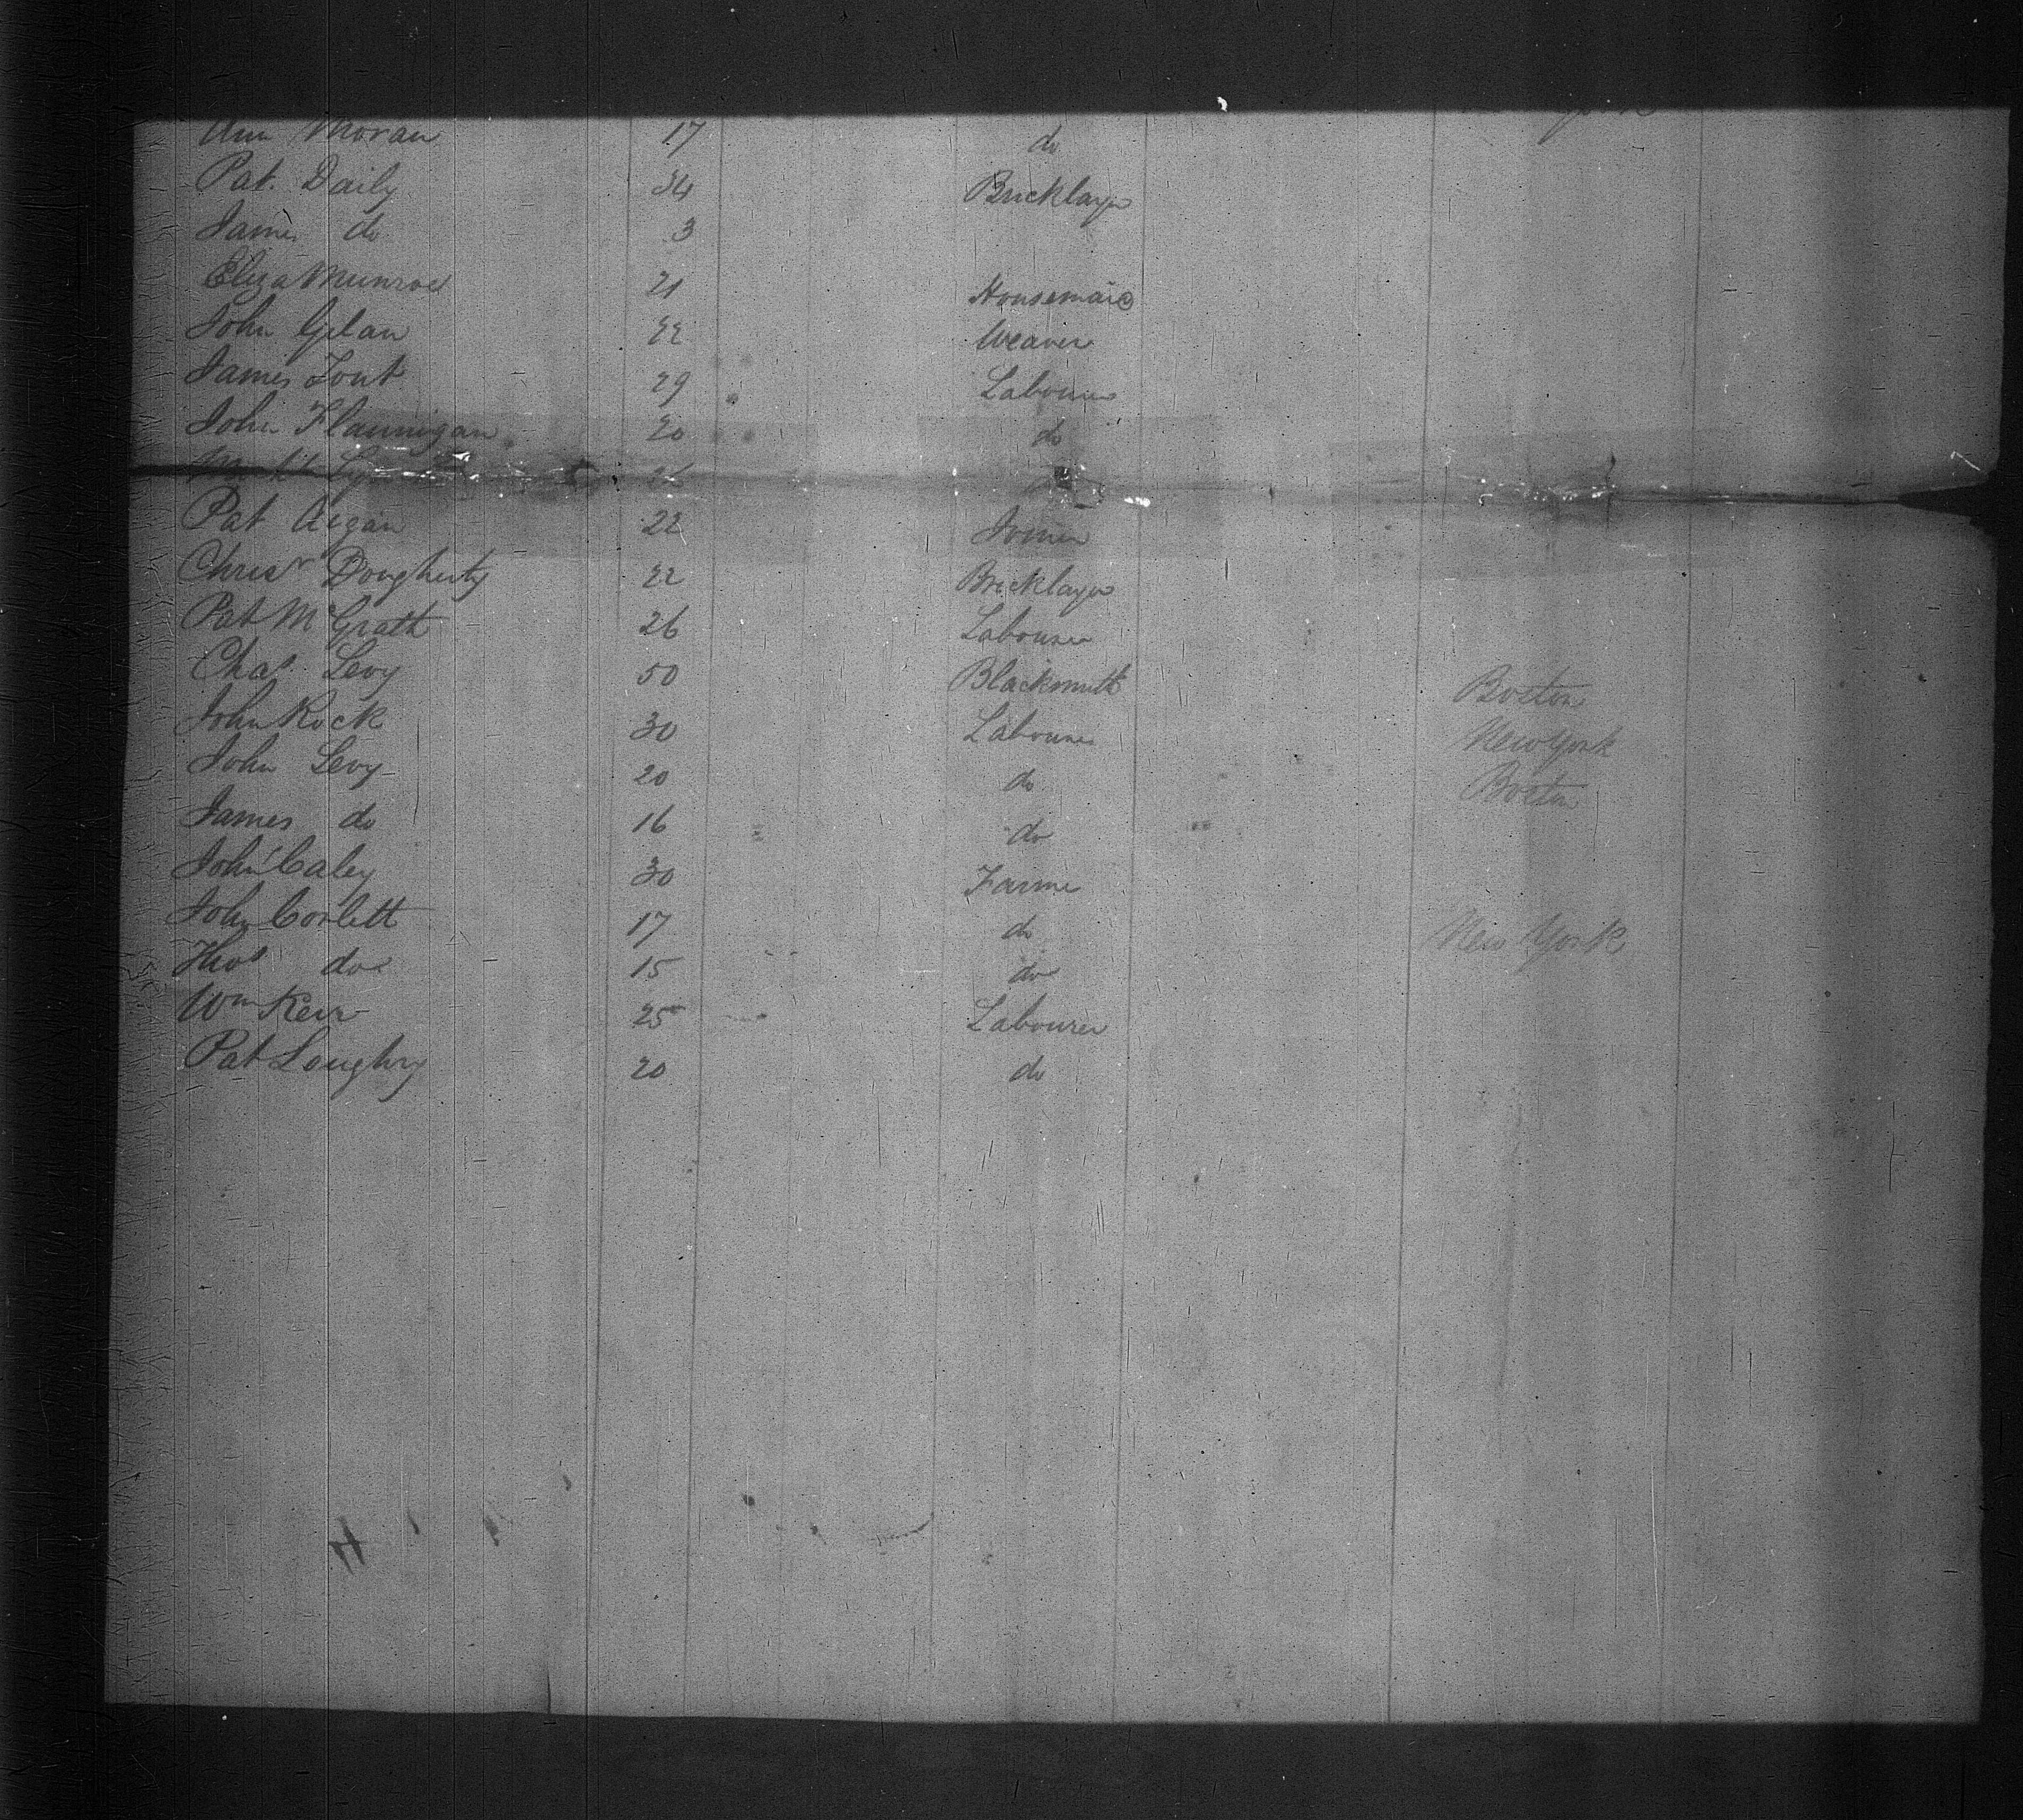 Ann Moran 17 do
Pat. Daily 34 Bricklayer
James do 3
Eliza Munroe 21 Housemaid
John Gilan 22 Weaver
James Font 29 Labourer
John Flannigan 20 do
26
Pat 22 Joiner
Chrisr Dougherty 22 Bricklayer
Pat McGrath 26 Labourer
Chas Levy 50 Blacksmith Boston
John Rock 30 Labourer New York
John Levy 20 do Boston
James do 16 do
John Caley 30 Farmer
John Corlett 17 do New York
Thos do 15 do
Wm Kerr 25 Labourer
Pat Loughry 20 do
4